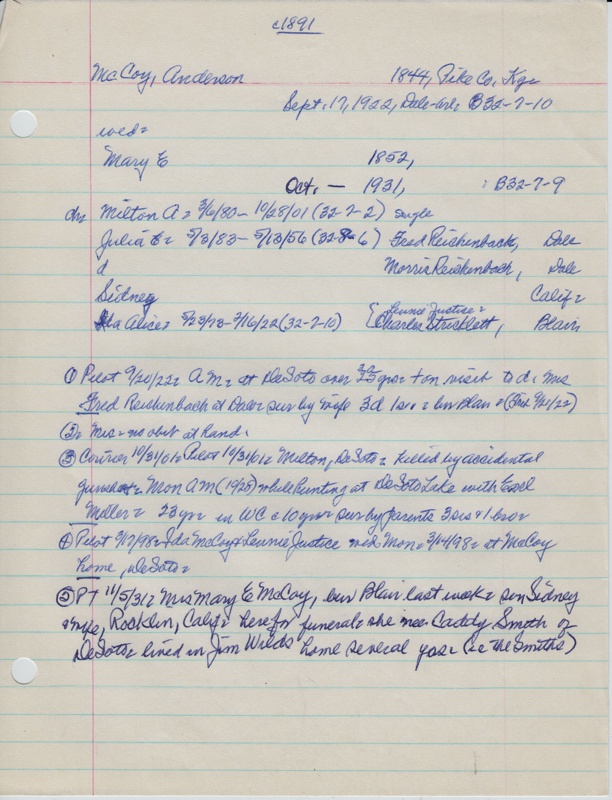 c1891
McCoy, Anderson 1844, Pike Co, Ky=
Sept. 17, 1922, Dale= B32-7-10
wed=
Mary E 1852,
Oct. — 1931, : B32-7-9
ch= Milton A= 3/6/80- 10/28/01 (32-7-2) single
Julia 5/3/83- 5/13/56 (32-8-6) Fred Reichenback, Dale
d Morris Reichenbach, Dale
Sidney Calif=
Ida Alice= 5/23/78- 3/16/22 (32-7-10) { Lennie Justice= Charles Stricklett, Blair
① Pilot 9/20/22= A M= at DeSoto over 35 yrs= + on visit to d. Mrs
Fred Reichenbach at Dale= sur by wife 3d 1s= bur Blair= (9/21/22)
② Mrs= no obit at hand.
③ Courier 10/31/01= Pilot 10/31/01= Milton, DeSoto= killed by accidental
gunshot= Mon AM (10/28) while hunting at DeSoto Lake with
Miller= 23 yr= in WC c10 yrs= sur by parents 3 sis + 1 bro=
④ Pilot 3/17/98= Ida McCoy + Lennie Justice wed Mon= 3/14/98= at McCoy
home, DeSoto=
⑤ PT 11/5/31= Mrs Mary E McCoy, bur Blair last week= son Sidney
+ wife, Rocklin, Calif= here for funeral= she nee Caddy Smith of
DeSoto= lived in Jim Wilds home several yrs= (ie the Smiths)